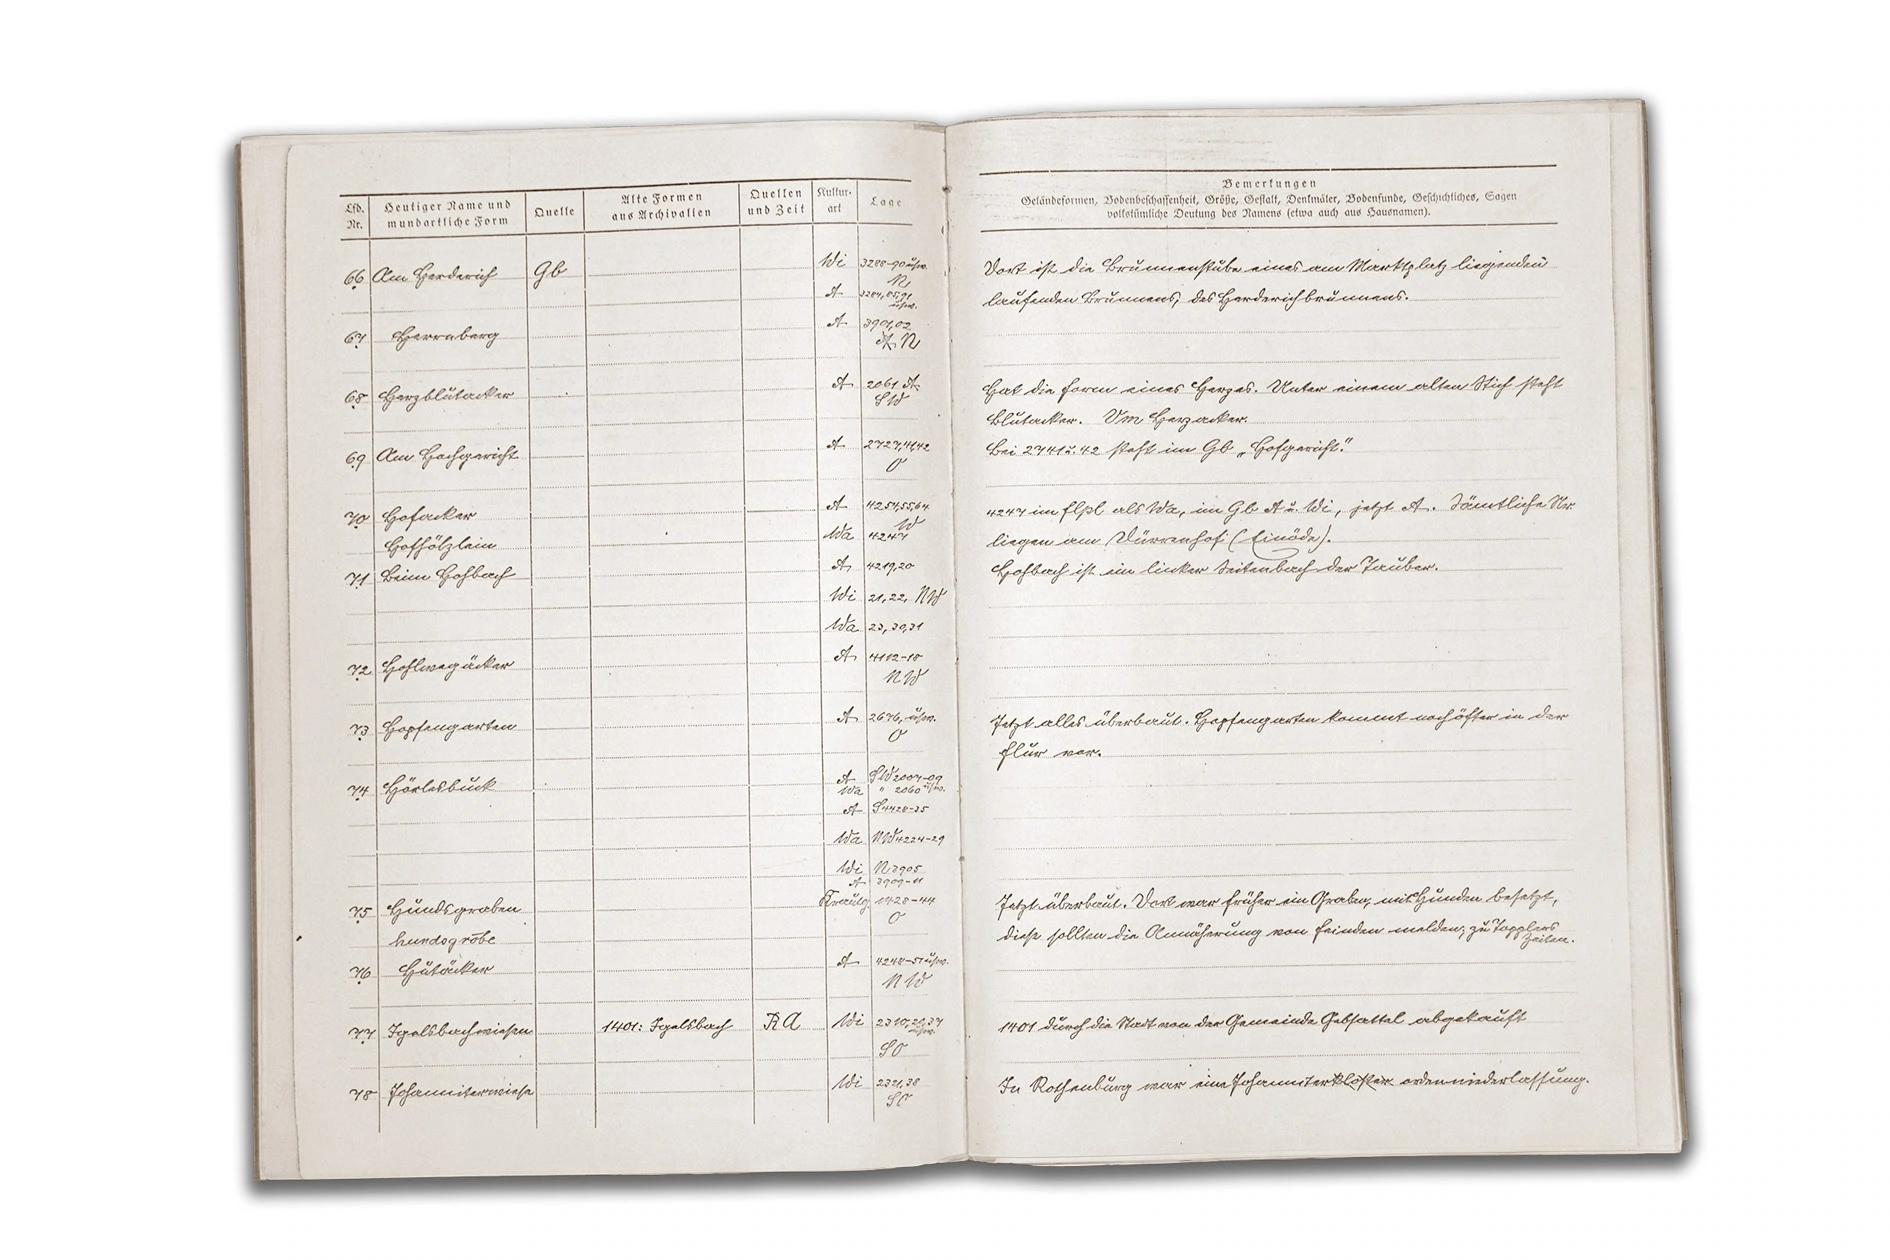 Lfd. Nr.
Heutiger Name und mundartliche Form
Quelle
Alte Formen aus Archivalien
Quellen und Zeit
Kultur- art
Lage
66 Am Herderich Gb Wi 3288-90 usw.
N
A 3284,85,91 usw.
67 Herrnberg A 3901,02
N
68 Herzblutacker A 2061
SW
69 Am Hochgericht A 2727,41,42
O
70 Hofacker A 4254,55,64
W
Hofhölzlein Wa 4247
71 Beim Hohbach A 4219,20
Wi 21,22, NW
Wa 23,30,31
72 Hohlwegäcker A 4112-18
NW
73 Hopfengarten A 2676, usw.
O
74 Hörlesbuck A SW 2007-09
Wa " 2060 usw.
A S 4428-35
Wa NW 4224-29
Wi N 3905
A 3909-11
75 Hundsgraben Krautg. 1428-44
O
hundsgrōbe
76 Hutäcker A 4248-51 usw.
NW
77 Igelsbachwiesen 1401: Igelsbach RA Wi 2310,21,37 usw.
SO
78 Johanniterwiese Wi 2321,38
SO
Bemerkungen
Geländeformen, Bodenbeschaffenheit, Größe, Gestalt, Denkmäler, Bodenfunde, Geschichtliches, Sagen
volkstümliche Deutung des Namens (etwa auch aus Hausnamen).
Dort ist die Brunnenstube eines am Marktplatz liegenden
laufenden Brunnens, des Herderichbrunnens.
Hat die Form eines Herzes. Unter einem alten Stich steht
Blutacker. Vm Herzacker.
Bei 2741 u. 42 steht im Gb „Hofgericht."
4247 im Flpl als Wa, im Gb A u. Wi, jetzt A. Sämtliche Nr.
liegen am Dürrenhof (Einöde).
Hohbach ist ein linker Seitenbach der Tauber.
Jetzt alles überbaut. Hopfengarten kommt noch öfter in der
Flur vor.
Jetzt überbaut. Dort war früher ein Graben, mit Hunden besetzt,
diese sollten die Annäherung von Feinden melden; zu Topplers
Zeiten.
1401 durch die Stadt von der Gemeinde Gebsattel abgekauft
In Rothenburg war eine Johanniterkloster ordenniederlassung.